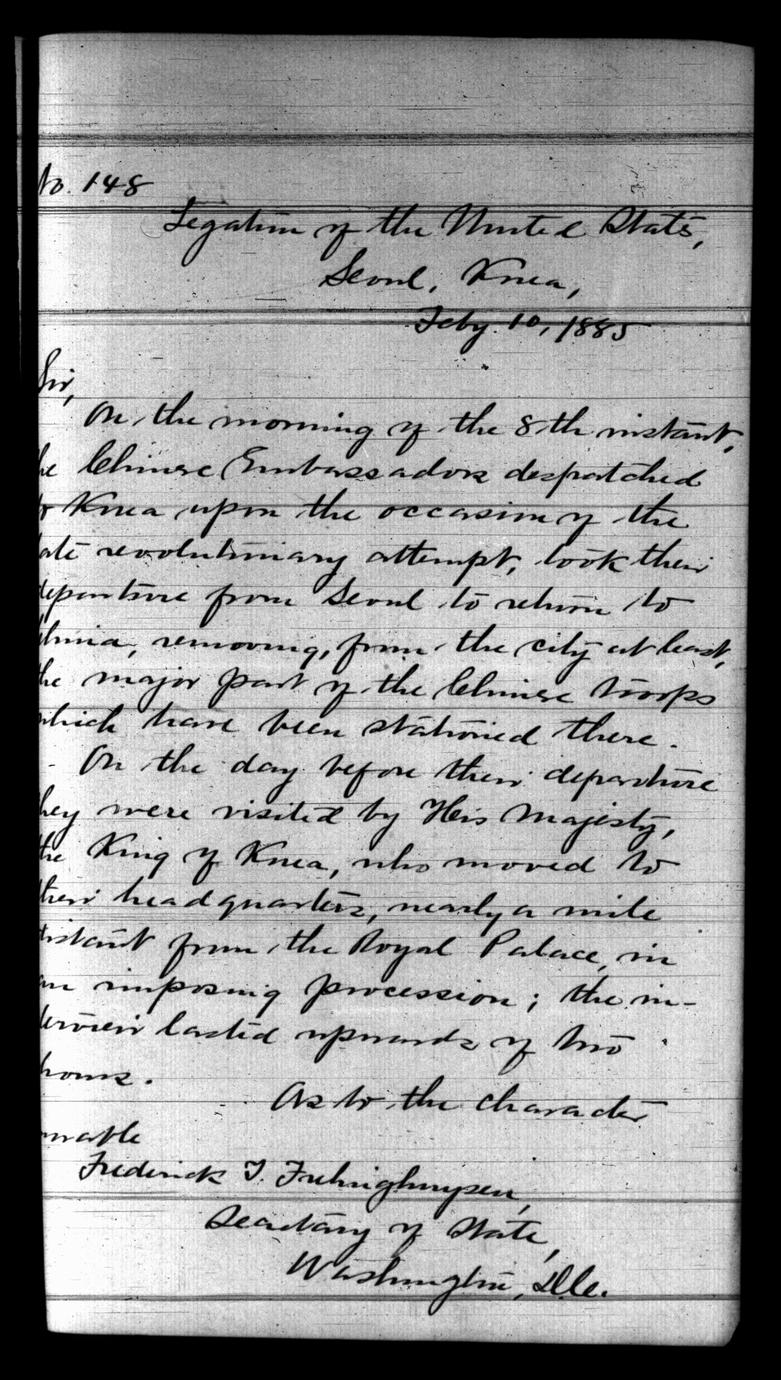 No. 148
Legation of the United States,
Seoul, Korea,
Feby. 10, 1885
Sir,
On the morning of the 8th instant,
the Chinese Embassadors despatched
to Korea upon the occasion of the
late revolutionary attempt, took their
departure from Seoul to return to
China, removing, from the city at least,
the major part of the Chinese troops
which have been stationed there.
On the day before their departure
they were visited by His Majesty,
the King of Korea, who moved to
their headquarters, nearly a mile
distant from the Royal Palace, in
an imposing procession; the in-
terview lasted upwards of two
hours.
As to the character
orable
Frederick T. Frelinghuysen,
Secretary of State,
Washington, D.C.